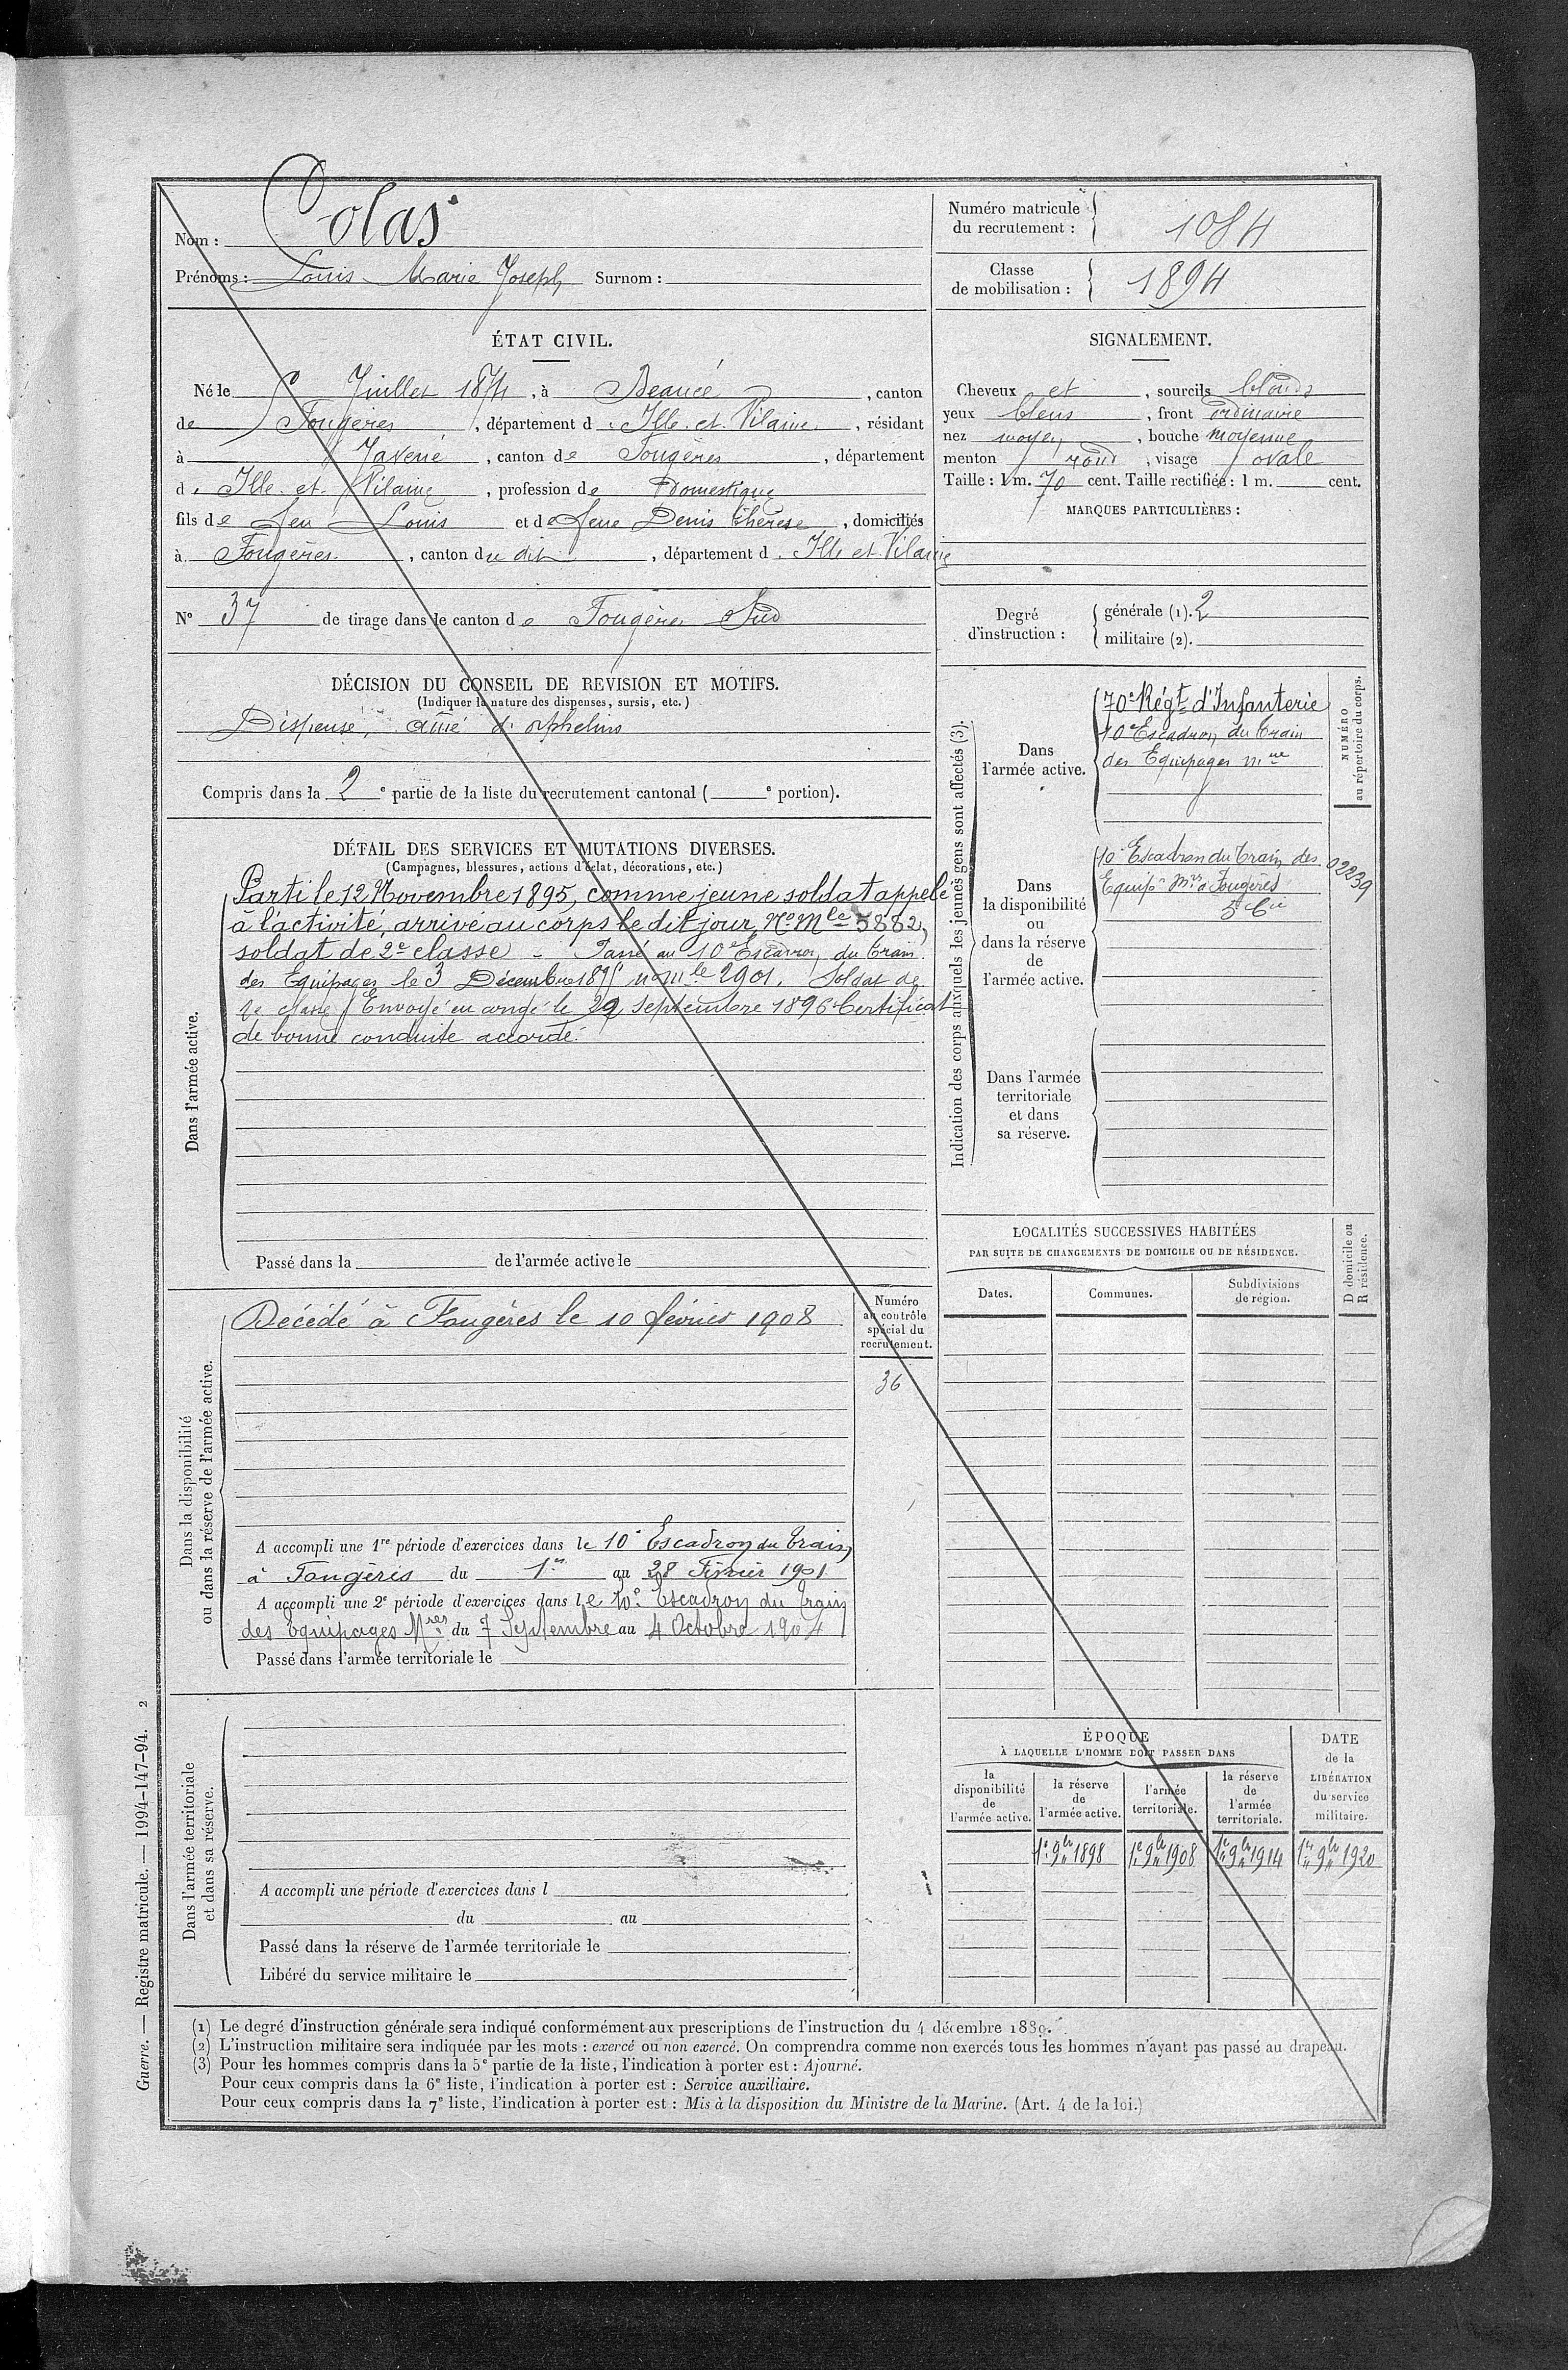 Nom : Colas
Prénoms : Louis Marie Joseph Surnom :
Numéro matricule du recrutement : 1084
Classe de mobilisation : 1894
ÉTAT CIVIL.
Né le Juillet 1874, à Beaucé, canton
de Fougères, département d'Ille et Vilaine, résidant
à Javené, canton de Fougères, département
d'Ille et Vilaine, profession de Domestique
fils de feu Louis et de feue Denis Thérèse, domiciliés
à Fougères, canton du dit, département d'Ille et Vilaine
N° 37 de tirage dans le canton de Fougères Sud
SIGNALEMENT.
Cheveux et, sourcils blonds
yeux bleus, front ordinaire
nez moyen, bouche moyenne
menton rond, visage ovale
Taille : 1 m. 70 cent. Taille rectifiée : 1 m. cent.
MARQUES PARTICULIÈRES :
Degré d'instruction : générale (1). 2
militaire (2).
DÉCISION DU CONSEIL DE REVISION ET MOTIFS.
(Indiquer la nature des dispenses, sursis, etc.)
Dispensé, aîné d'orphelins
Compris dans la 2e partie de la liste du recrutement cantonal ( e portion).
DÉTAIL DES SERVICES ET MUTATIONS DIVERSES.
(Campagnes, blessures, actions d'éclat, décorations, etc.)
Dans l'armée active.
Parti le 12 Novembre 1895, comme jeune soldat appelé
à l'activité, arrivé au corps le dit jour, No Mle 5882,
soldat de 2e classe - Passé au 10e Escadron du train
des Equipages le 3 Décembre 1895 no mle 2901. Soldat de
2e classe Envoyé en congé le 29 Septembre 1896 Certificat
de bonne conduite accordé.
Passé dans la de l'armée active le
Indication des corps auxquels les jeunes gens sont affectés (3).
NUMÉRO au répertoire du corps.
Dans l'armée active.
70e Régt d'Infanterie
10e Escadron du train
des Equipages mre
Dans la disponibilité ou dans la réserve de l'armée active.
10e Escadron du train des
Equip. Mres à Fougères
5e Cie
02239
Dans l'armée territoriale et dans sa réserve.
LOCALITÉS SUCCESSIVES HABITÉES
PAR SUITE DE CHANGEMENTS DE DOMICILE OU DE RÉSIDENCE.
Dates. Communes. Subdivisions de région. D domicile ou R résidence.
Dans la disponibilité ou dans la réserve de l'armée active.
Décédé à Fougères le 10 février 1908
Numéro au contrôle spécial du recrutement.
36
A accompli une 1re période d'exercices dans le 10e Escadron du train
à Fougères du 1er au 28 Février 1901
A accompli une 2e période d'exercices dans le 10e Escadron du train
des Equipages Mres du 7 Septembre au 4 Octobre 1904
Passé dans l'armée territoriale le
Dans l'armée territoriale et dans sa réserve.
A accompli une période d'exercices dans l
du au
Passé dans la réserve de l'armée territoriale le
Libéré du service militaire le
ÉPOQUE
À LAQUELLE L'HOMME DOIT PASSER DANS
la disponibilité de l'armée active.
la réserve de l'armée active.
l'armée territoriale.
la réserve de l'armée territoriale.
DATE de la LIBÉRATION du service militaire.
1er 9bre 1898 1er 9bre 1908 1er 9bre 1914 1er 9bre 1920
(1) Le degré d'instruction générale sera indiqué conformément aux prescriptions de l'instruction du 4 décembre 1889.
(2) L'instruction militaire sera indiquée par les mots : exercé ou non exercé. On comprendra comme non exercés tous les hommes n'ayant pas passé au drapeau.
(3) Pour les hommes compris dans la 5e partie de la liste, l'indication à porter est : Ajourné.
Pour ceux compris dans la 6e liste, l'indication à porter est : Service auxiliaire.
Pour ceux compris dans la 7e liste, l'indication à porter est : Mis à la disposition du Ministre de la Marine. (Art. 4 de la loi.)
Guerre. — Registre matricule. — 1994-147-94. 2